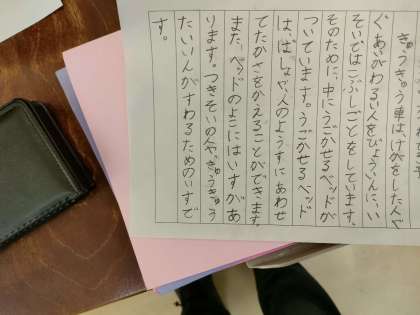 きゅうきゅう車は、けがをした人や
ぐあいがわるい人をびょういんに、い
そいではこぶしごとをしています。
そのために、中にうごかせるベッドが
ついています。うごかせるベッド
は、ばしょや、人のようすにあわせ
てたかさをかえることができます。
また、ベッドのよこにはいすがあ
ります。つきそいの人や、きゅうきゅう
たいいんがすわるためのいすで
す。